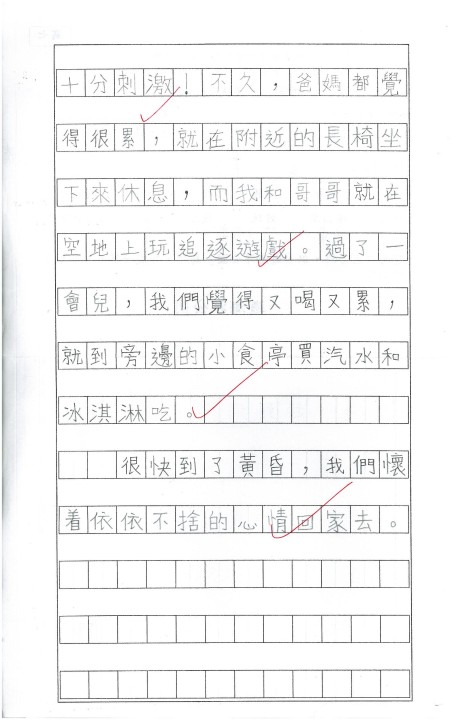 十分刺激！不久，爸媽都覺
得很累，就在附近的長椅坐
下來休息，而我和哥哥就在
空地上玩追逐遊戲。過了一
會兒，我們覺得又喝又累，
就到旁邊的小食亭買汽水和
冰淇淋吃。
很快到了黃昏，我們懷
着依依不捨的心情回家去。